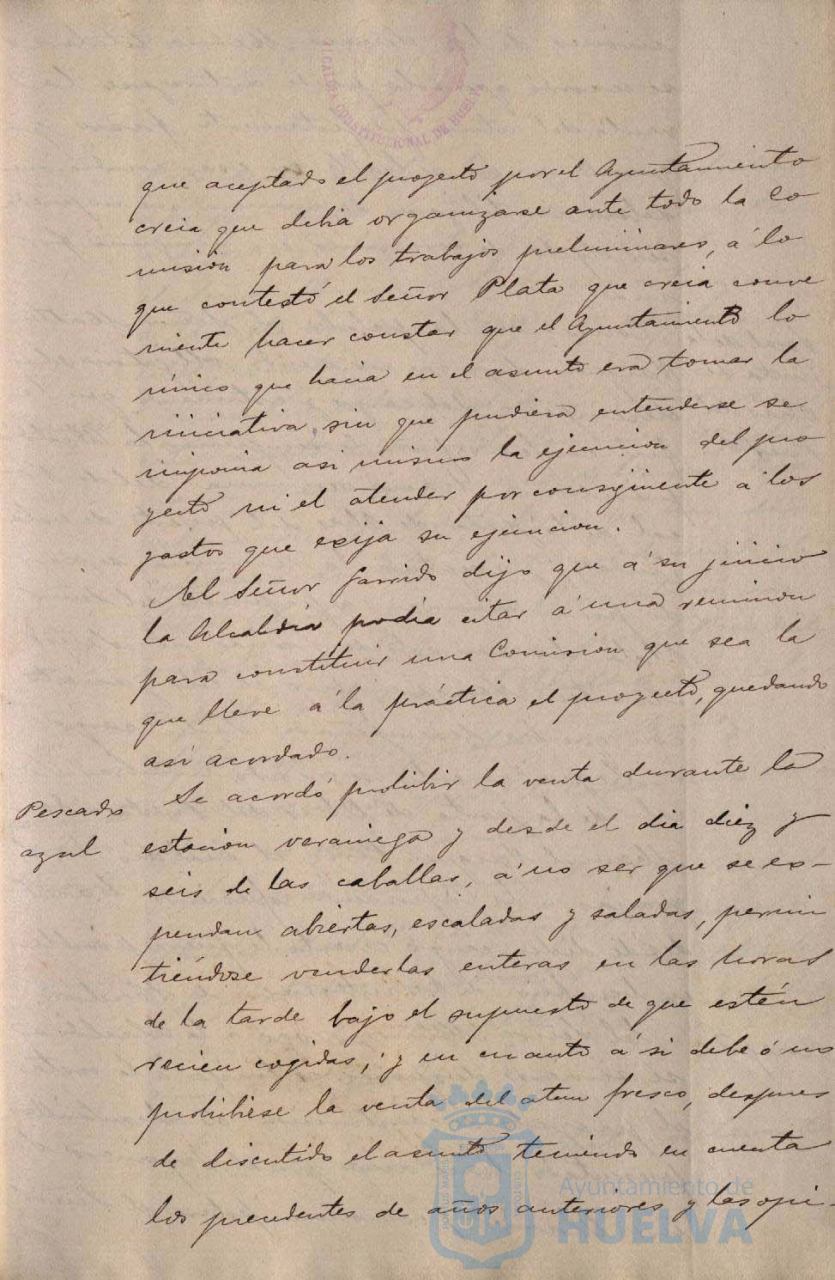 ALCALDIA CONSTITUCIONAL DE HUELVA
que aceptado el proyecto por el Ayuntamiento
creia que debia organizarse ante todo la Co
mision para los trabajos preliminares, á lo
que contestó el Señor Plata que creia conve
niente hacer constar que el Ayuntamiento lo
único que hacia en el asunto era tomar la
iniciativa, sin que pudiera entenderse se
imponia asi mismo la ejecucion del pro
yecto ni el atender por consigüiente á los
gastos que exija su ejecucion.
El Señor Garrido dijo que á su juicio
la Alcaldia podia citar á una reunion
para constituir una Comision que sea la
que lleve á la práctica el proyecto, quedando
asi acordado.
Pescado
azul
Se acordó prohibir la venta durante la
estacion veraniega y desde el dia diez y
seis de las caballas, á no ser que se ex-
pendan abiertas, escaladas y saladas, permi
tiéndose venderlas enteras en las horas
de la tarde bajo el supuesto de que estén
recien cogidas; y en cuanto á si debe ó no
prohibirse la venta del atun fresco, despues
de discutido el asunto teniendo en cuenta
los precedentes de años anteriores y las opi-
Ayuntamiento de
HUELVA